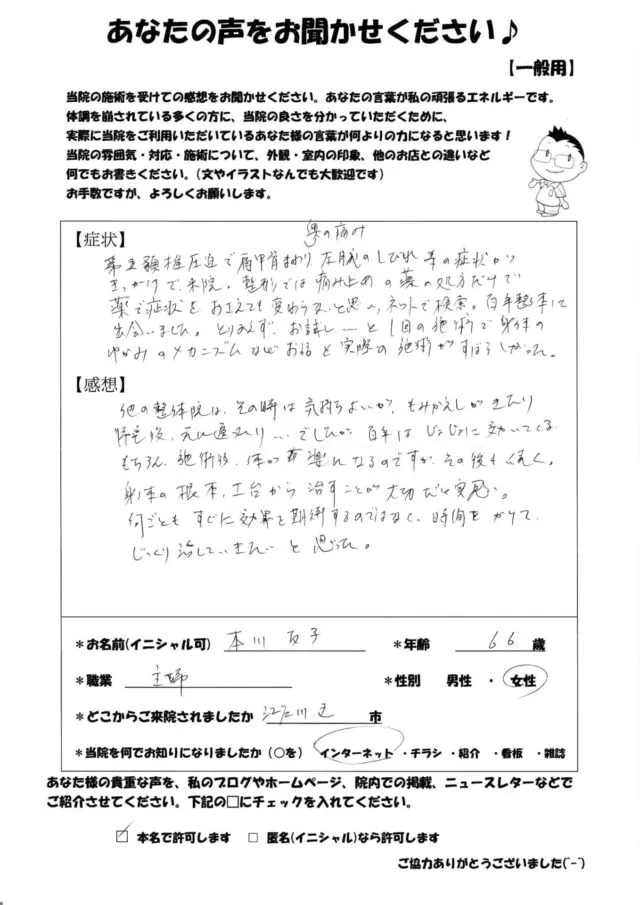 あなたの声をお聞かせください♪
【一般用】
当院の施術を受けての感想をお聞かせください。あなたの言葉が私の頑張るエネルギーです。
体調を崩されている多くの方に、当院の良さを分かっていただくために、
実際に当院をご利用いただいているあなた様の言葉が何よりの力になると思います!
当院の雰囲気・対応・施術について、外観・室内の印象、他のお店との違いなど
何でもお書きください。(文やイラストなんでも大歓迎です)
お手数ですが、よろしくお願いします。
【症状】
の痛み
第五頚椎圧迫で肩甲骨まわり 左腕のしびれ 等の症状が
きっかけで来院。整形では痛み止めの薬の処方だけで
薬で症状をおさえても変わらないと思い、ネットで検索。百年整体に
出会いました。とりあえず、お試し…と1回の施術で身体の
ゆがみのメカニズムなどお話と実際の施術がすばらしかった。
【感想】
他の整体院は、その時は気持ちよいが、もみかえしがきたり
帰宅後、元に戻ったり…でしたが 百年はじょじょに効いてくる。
もちろん、施術後、体が楽になるのですが、その後も続く。
身体の根本、土台から治すことが大切だと実感。
何ごともすぐに効果を期待するのではなく、時間をかけて
じっくり治していきたいと思った。
*お名前(イニシャル可) 本川 友子 *年齢 66 歳
*職業 主婦 *性別 男性 ・ 女性
*どこからご来院されましたか 江戸川区 市
*当院を何でお知りになりましたか(○を) インターネット ・チラシ ・紹介 ・看板 ・雑誌
あなた様の貴重な声を、私のブログやホームページ、院内での掲載、ニュースレターなどで
ご紹介させてください。下記の□にチェックを入れてください。
☑ 本名で許可します □ 匿名(イニシャル)なら許可します
ご協力ありがとうございました(^-^)